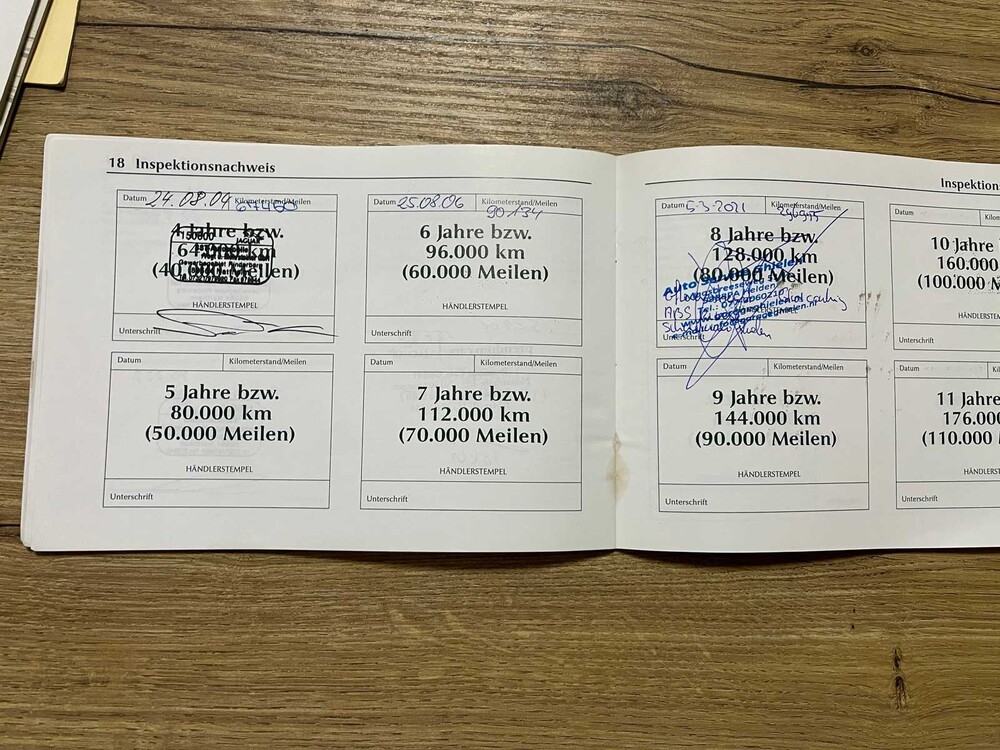 18 Inspektionsnachweis
Datum 24.08.04 Kilometerstand/Meilen
4 Jahre bzw.
64.000 km
(40.000 Meilen)
JAGUAR
HÄNDLERSTEMPEL
Unterschrift
Datum 25.08.06 Kilometerstand/Meilen
90134
6 Jahre bzw.
96.000 km
(60.000 Meilen)
HÄNDLERSTEMPEL
Unterschrift
Datum Kilometerstand/Meilen
5 Jahre bzw.
80.000 km
(50.000 Meilen)
HÄNDLERSTEMPEL
Unterschrift
Datum Kilometerstand/Meilen
7 Jahre bzw.
112.000 km
(70.000 Meilen)
HÄNDLERSTEMPEL
Unterschrift
Inspektions
Datum 5-3-2021 Kilometerstand/Meilen
8 Jahre bzw.
128.000 km
(80.000 Meilen)
Auto Service
ABS
Unterschrift
Datum
10 Jahre
160.000
(100.000 M
HÄNDLERSTEM
Unterschrift
Datum Kilometerstand/Meilen
9 Jahre bzw.
144.000 km
(90.000 Meilen)
HÄNDLERSTEMPEL
Unterschrift
Datum
11 Jahre
176.000
(110.000
HÄNDLERST
Unterschrift